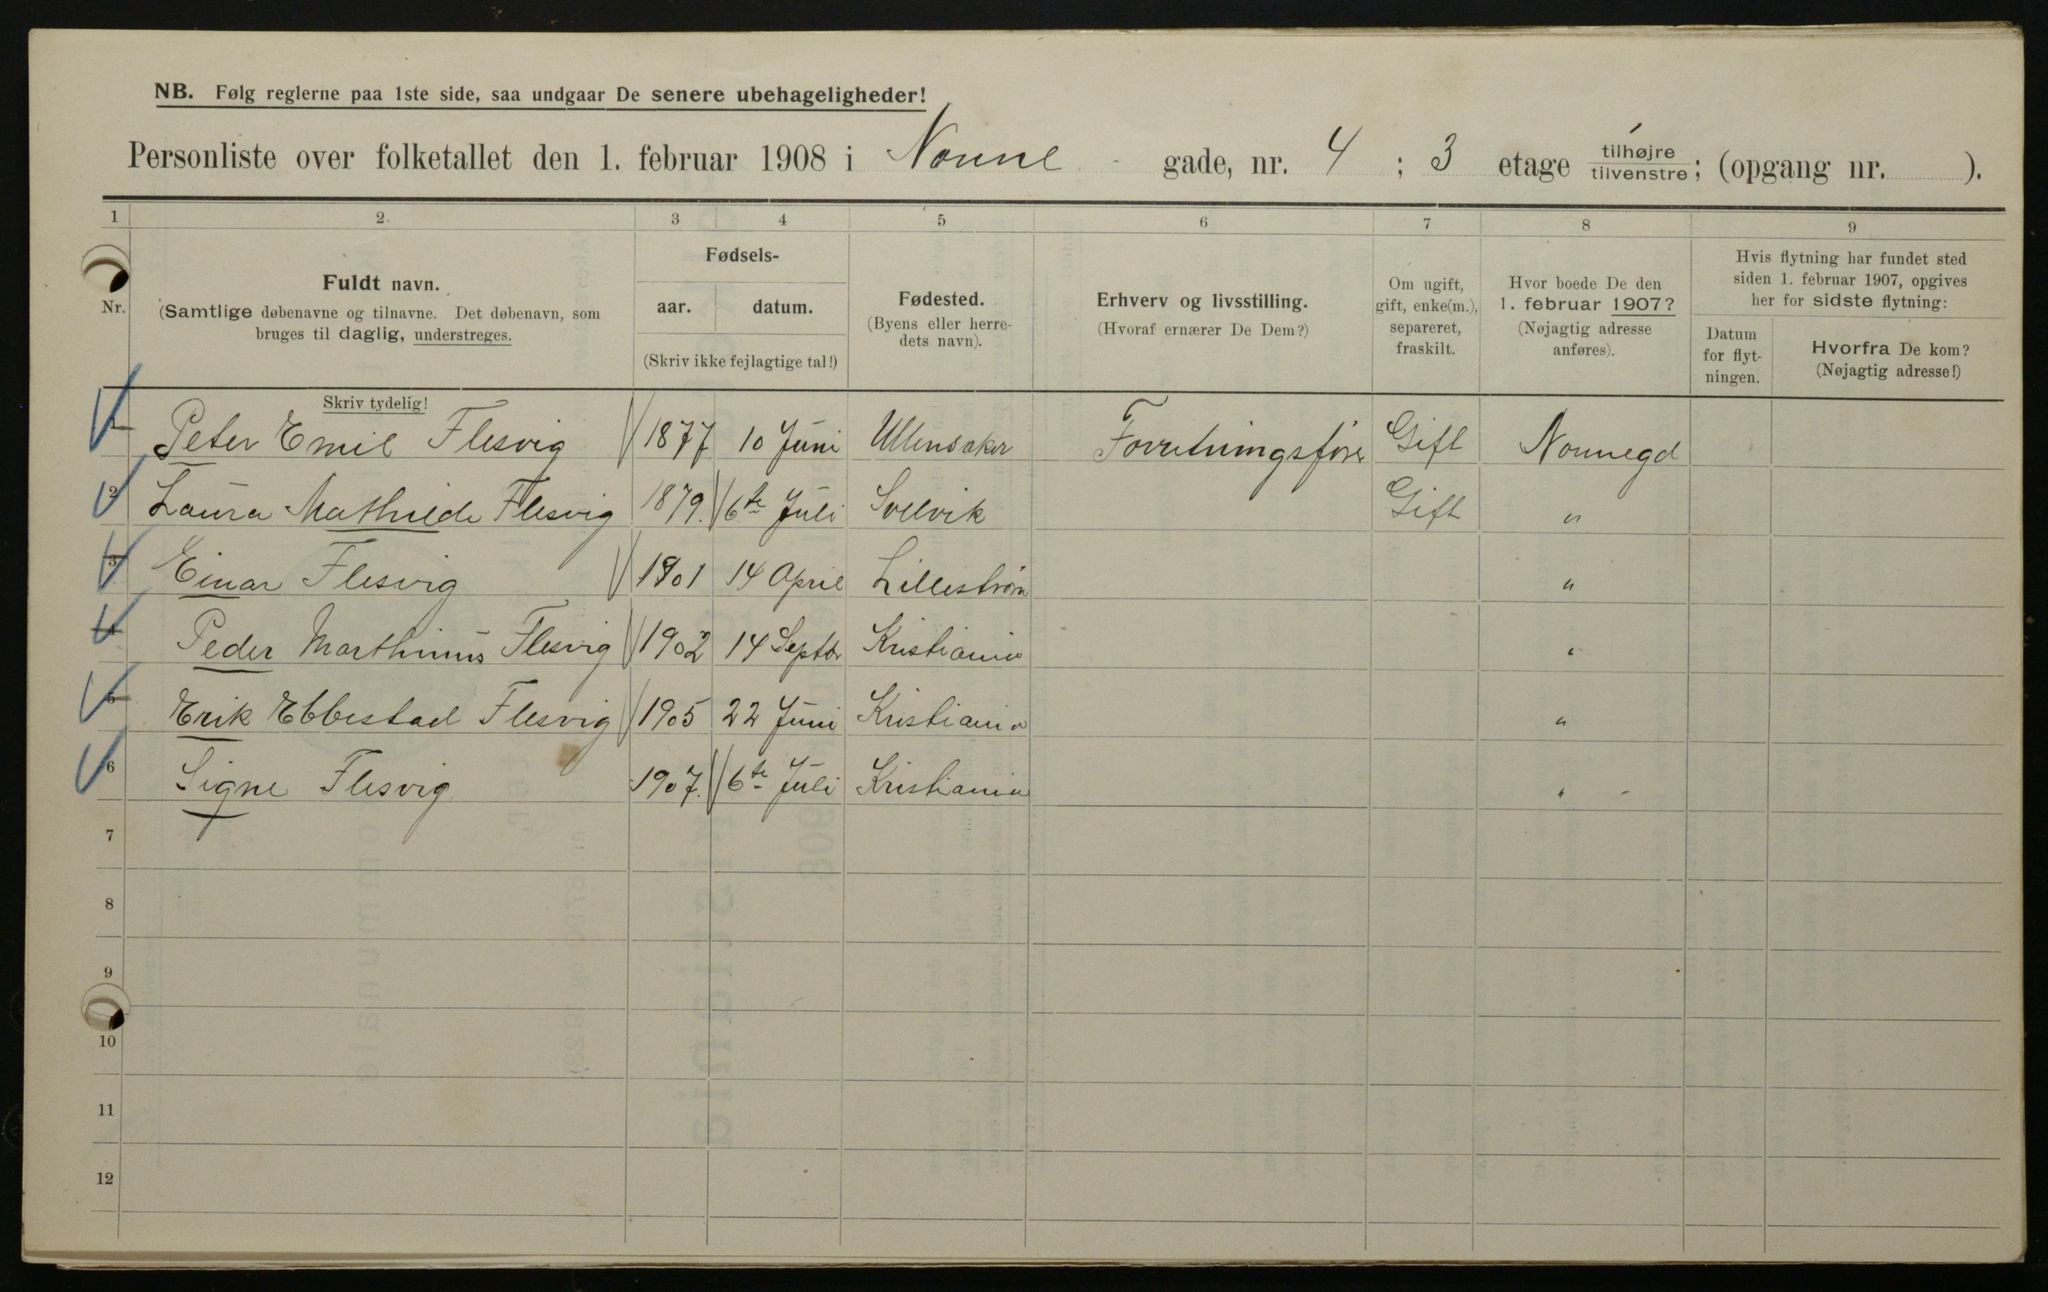 NB. Følg reglerne paa 1ste side, saa undgaar De senere ubehageligheder!
Personliste over folketallet den 1. februar 1908 i Nonne gade, nr. 4 ; 3 etage tilhøjre/tilvenstre; (opgang nr. ).
1 2. 3 4 5 6 7 8 9
Nr.
Fuldt navn.
(Samtlige døbenavne og tilnavne. Det døbenavn, som
bruges til daglig, understreges.
Skriv tydelig!
Fødsels-
aar. datum.
(Skriv ikke fejlagtige tal!)
Fødested.
(Byens eller herre-
dets navn).
Erhverv og livsstilling.
(Hvoraf ernærer De Dem?)
Om ugift,
gift, enke(m.),
separeret,
fraskilt.
Hvor boede De den
1. februar 1907?
(Nøjagtig adresse
anføres).
Hvis flytning har fundet sted
siden 1. februar 1907, opgives
her for sidste flytning:
Datum
for flyt-
ningen.
Hvorfra De kom?
(Nøjagtig adresse!)
1 Peter Emil Flesvig 1877 10 Juni Ullensaker Forretningsfører Gift Nonnegd
2 Laura Mathilde Flesvig 1879. 6te Juli Svelvik Gift "
3 Einar Flesvig 1901 14 April Lilleström "
4 Peder Marthinus Flesvig 1902 14 Septbr Kristiania "
5 Erik Ebbestad Flesvig 1905 22 Juni Kristiania "
6 Signe Flesvig 1907. 6te Juli Kristiania "
7
8
9
10
11
12